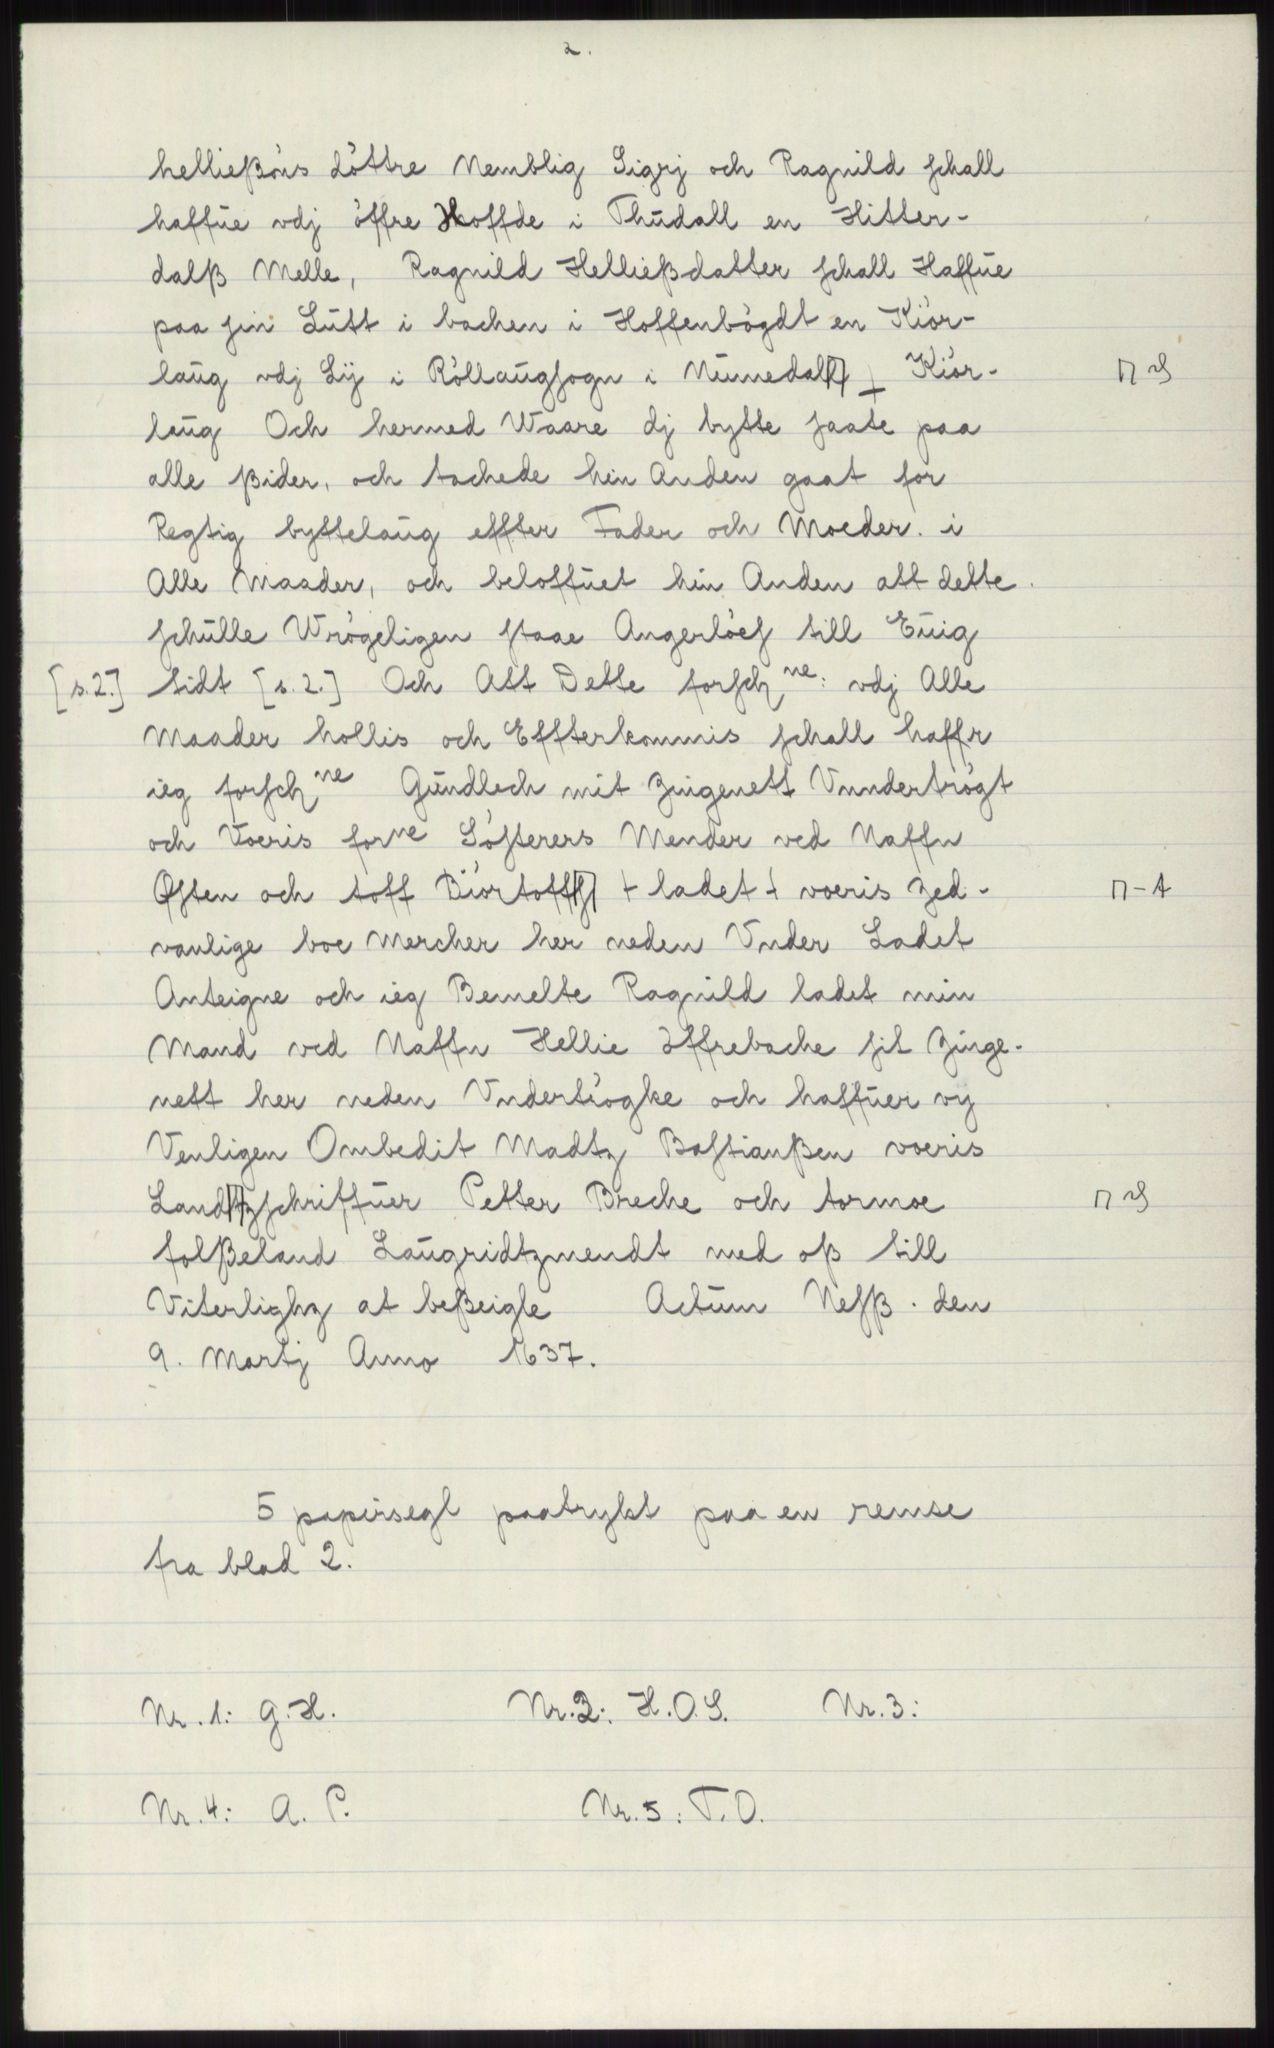 2.
helließøns döttre Nemblig Sigrj och Ragnild schall
haffue vdj öffre Hoffde i Thudall en Hitter-
dalß Melle, Ragnild Helließdatter schall Haffue
paa sin Lutt i bachen i Hoffenbögdt en Kiör-
laug vdj Lÿ i Röllaugsogn i Numedalß ⊥ Kiör- ⊓ ɔſ
laug Och hermed Waare dj bytte saate paa
alle ßider, och tachede hin Anden gaat for
Regtig byttelaug effter Fader och Moeder. i
Alle Maader, och beloffuet hin Anden att dette
schulle Wrögeligen staae Angerlöes till Euig
[s.2.] tidt [s.2.] Och Att Dette forsch ne: vdj Alle
Maader hollis och Effterkommis schall haffr
ieg forsch ne Gundlech mit Zingenett Vnndertrögt
och Voeris for ne Sösterers Mender ved Naffn
Østen och toff Biörtoffs + ladet + voeris zed- ⊓-t
vanlige boe Mercher her neden Vnder Ladet
Anteigne och ieg Bemelte Ragnild ladet min
Mand ved Naffn Hellie öffrebache sit Zinge-
nett her neden Vndertrögke och haffuer vÿ
Venligen Ombedit Madtz Bastianßen voeris
Landtzschriffuer Petter Breche och tormoe ⊓ ɔſ
folßeland Laugridtzmendt med oß till
Viterlighz at beßeigle Actum Nesß. den
9. Martj Anno 1637.
5 papirsegl paatrykt paa en remse
fra blad 2.
Nr. 1: G.H. Nr. 2: H.O.S. Nr. 3:
Nr. 4: A. P. Nr. 5: T.O.